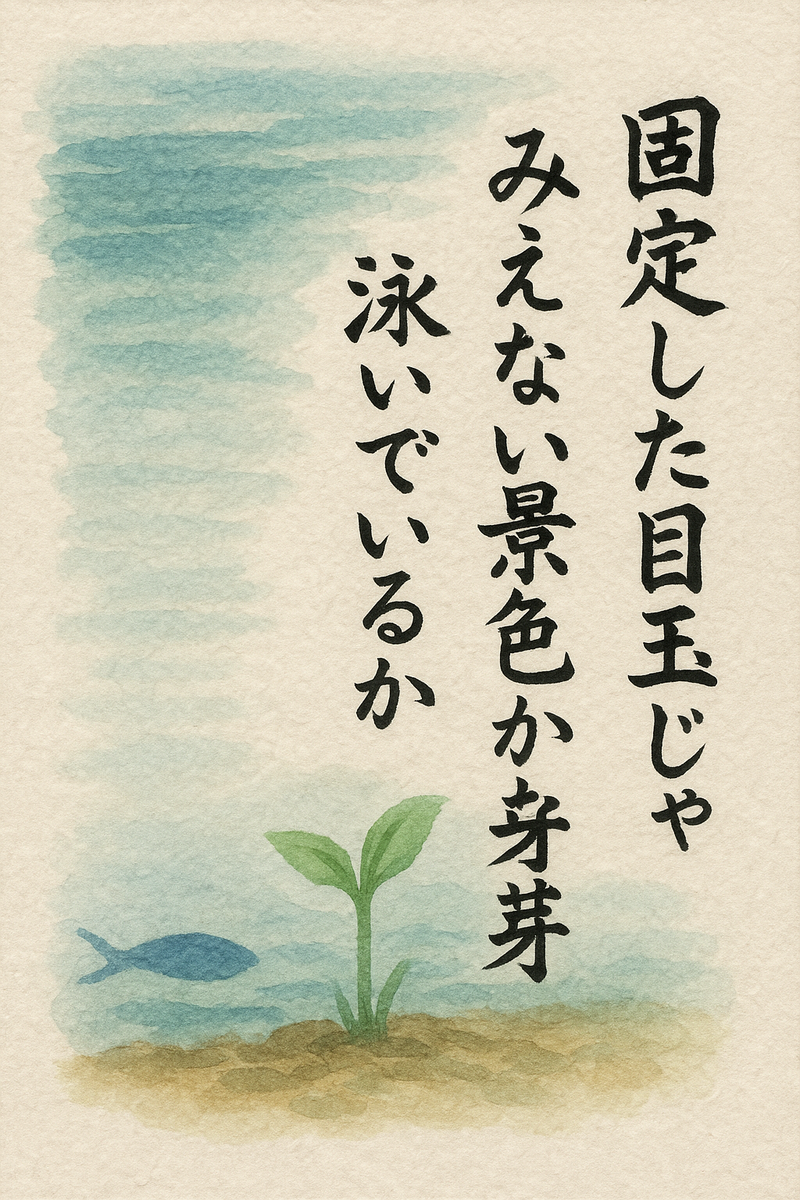 固定した目玉じゃ
みえない景色か芽
泳いでいるか